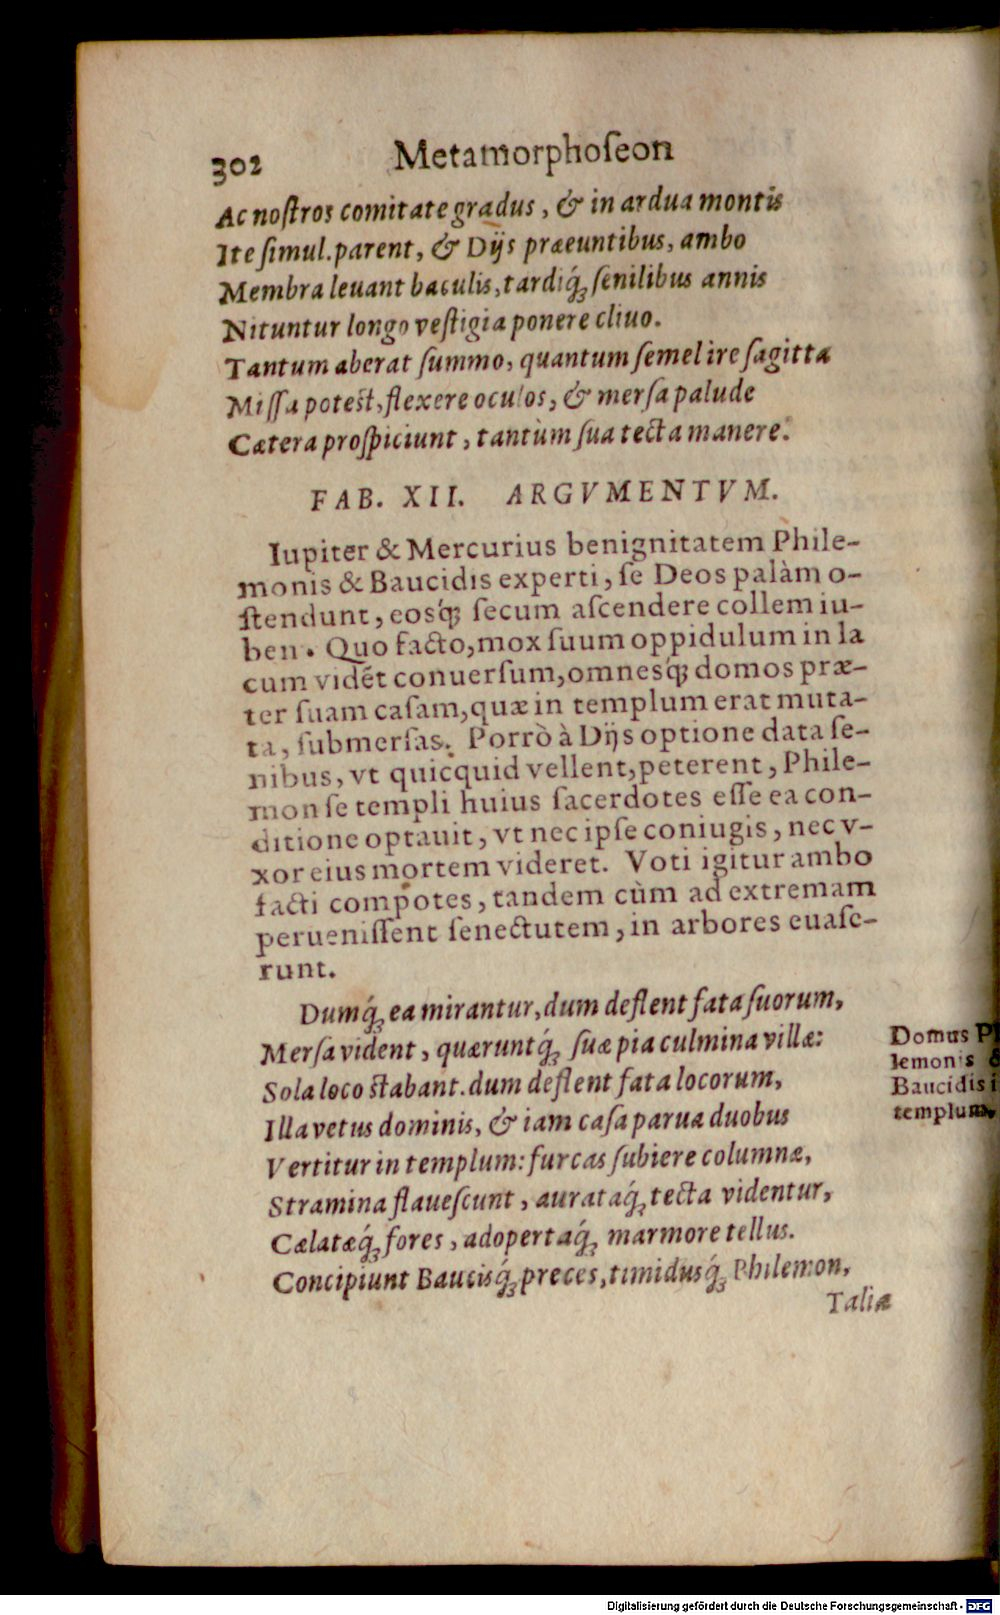 302 Metamorphoſeon
Ac noſtros comitate gradus, & in ardua montis
Ite ſimul. parent, & Dijs præeuntibus, ambo
Membra leuant baculis, tardiq́; ſenilibus annis
Nituntur longo veſtigia ponere cliuo.
Tantum aberat ſummo, quantum ſemel ire ſagitta
Miſſa poteſt, flexere oculos, & merſa palude
Cætera proſpiciunt, tantùm ſua tecta manere.
FAB. XII. ARGVMENTVM.
Iupiter & Mercurius benignitatem Phile-
monis & Baucidis experti, ſe Deos palàm o-
ſtendunt, eosq́; ſecum aſcendere collem iu-
ben. Quo facto, mox ſuum oppidulum in la
cum vidēt conuerſum, omnesq́; domos præ-
ter ſuam caſam, quæ in templum erat muta-
ta, ſubmerſas. Porrò à Dijs optione data ſe-
nibus, vt quicquid vellent, peterent, Phile-
mon ſe templi huius ſacerdotes eſſe ea con-
ditione optauit, vt nec ipſe coniugis, nec v-
xor eius mortem videret. Voti igitur ambo
facti compotes, tandem cùm ad extremam
perueniſſent ſenectutem, in arbores euaſe-
runt.
Dumq́; ea mirantur, dum deflent fata ſuorum,
Merſa vident, quæruntq́; ſuæ pia culmina villæ:
Sola loco ſtabant. dum deflent fata locorum,
Illa vetus dominis, & iam caſa parua duobus
Vertitur in templum: furcas ſubiere columnæ,
Stramina flaueſcunt, aurataq́; tecta videntur,
Cælatæq́; fores, adopertaq́; marmore tellus.
Concipiunt Baucisq́; preces, timidusq́; Philemon,
Talia
Domus P
lemonis &
Baucidis i
templum.
Digitalisierung gefördert durch die Deutsche Forschungsgemeinschaft - DFG